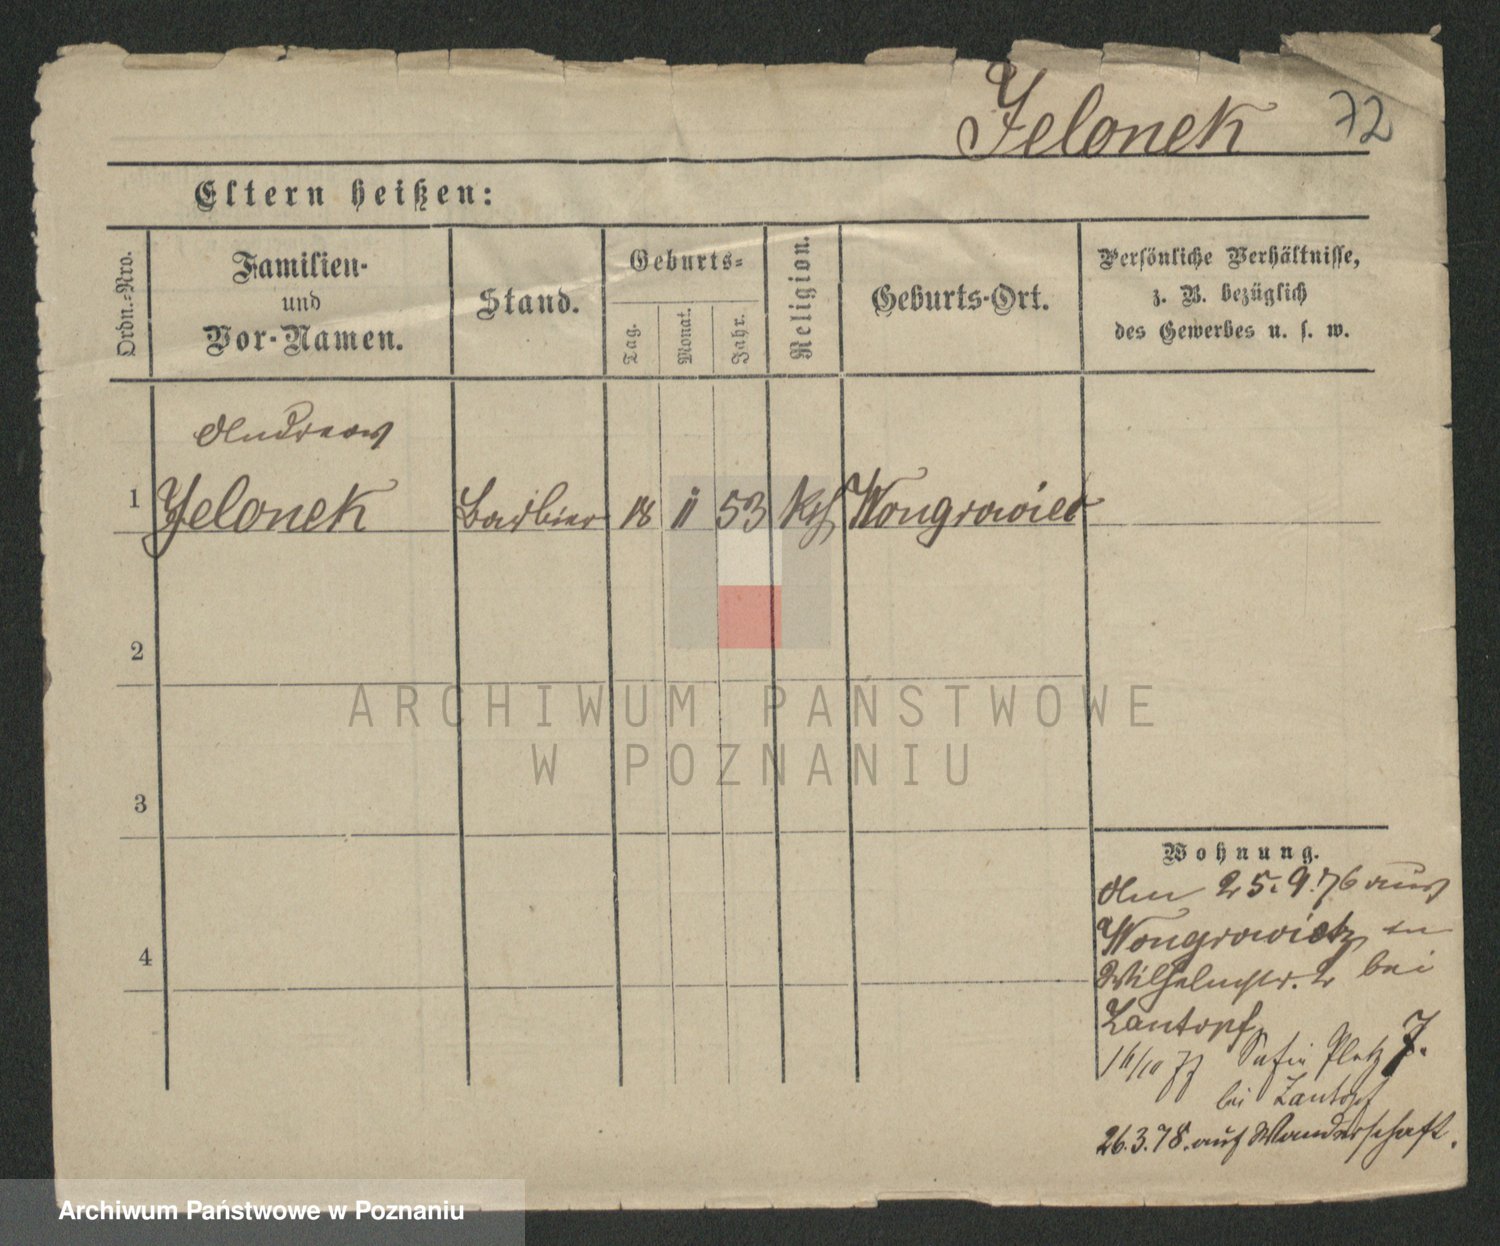 Jelonek 72
Eltern heißen:
Ordn.=Nro.
Familien-
und
Vor-Namen.
Stand.
Geburts=
Tag.
Monat.
Jahr.
Religion.
Geburts-Ort.
Persönliche Verhältnisse,
z. B. bezüglich
des Gewerbes u. s. w.
Andreas
1 Jelonek Barbier 18 11 53 kth Wongrowiec
2
3
4
Wohnung.
Am 25.9.76 aus
Wongrowietz in
Wilhelmstr. 2 bei
Zantopf
16/10 77 Safie Platz 7.
bei Zantopf
26.3.78. auf Wanderschaft.
ARCHIWUM PAŃSTWOWE
W POZNANIU
Archiwum Państwowe w Poznaniu